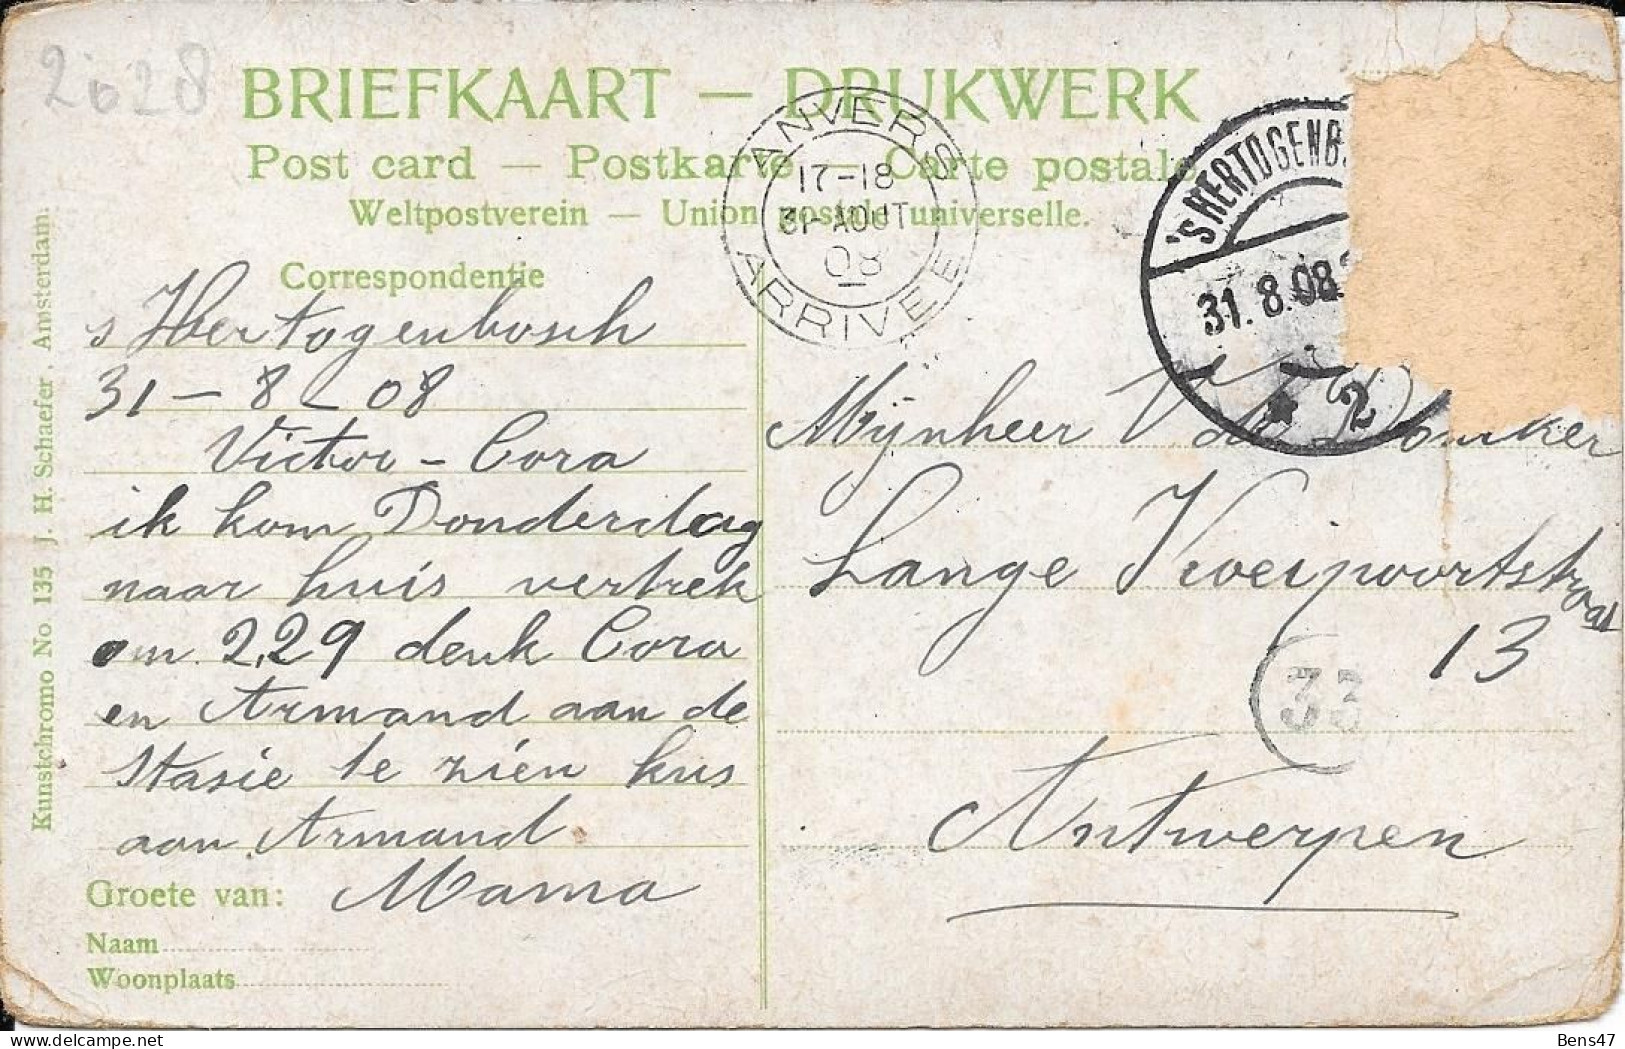 2628
BRIEFKAART — DRUKWERK
Post card — Postkarte — Carte postale
Weltpostverein — Union postale universelle.
ANVERS
17-18
31-AOUT
08
ARRIVEE
'S HERTOGENB
31. 8. 08
2
Correspondentie
s Hertogenbosch
31 - 8 - 08
Victor - Cora
ik kom Donderdag
naar huis vertrek
om 2,29 denk Cora
en Armand aan de
Stasie te zien kus
aan Armand
Groete van: Mama
Naam
Woonplaats
Mijnheer V
Lange
13
33
Antwerpen
Kunstchromo No 135 J. H. Schaefer, Amsterdam.
Bens47